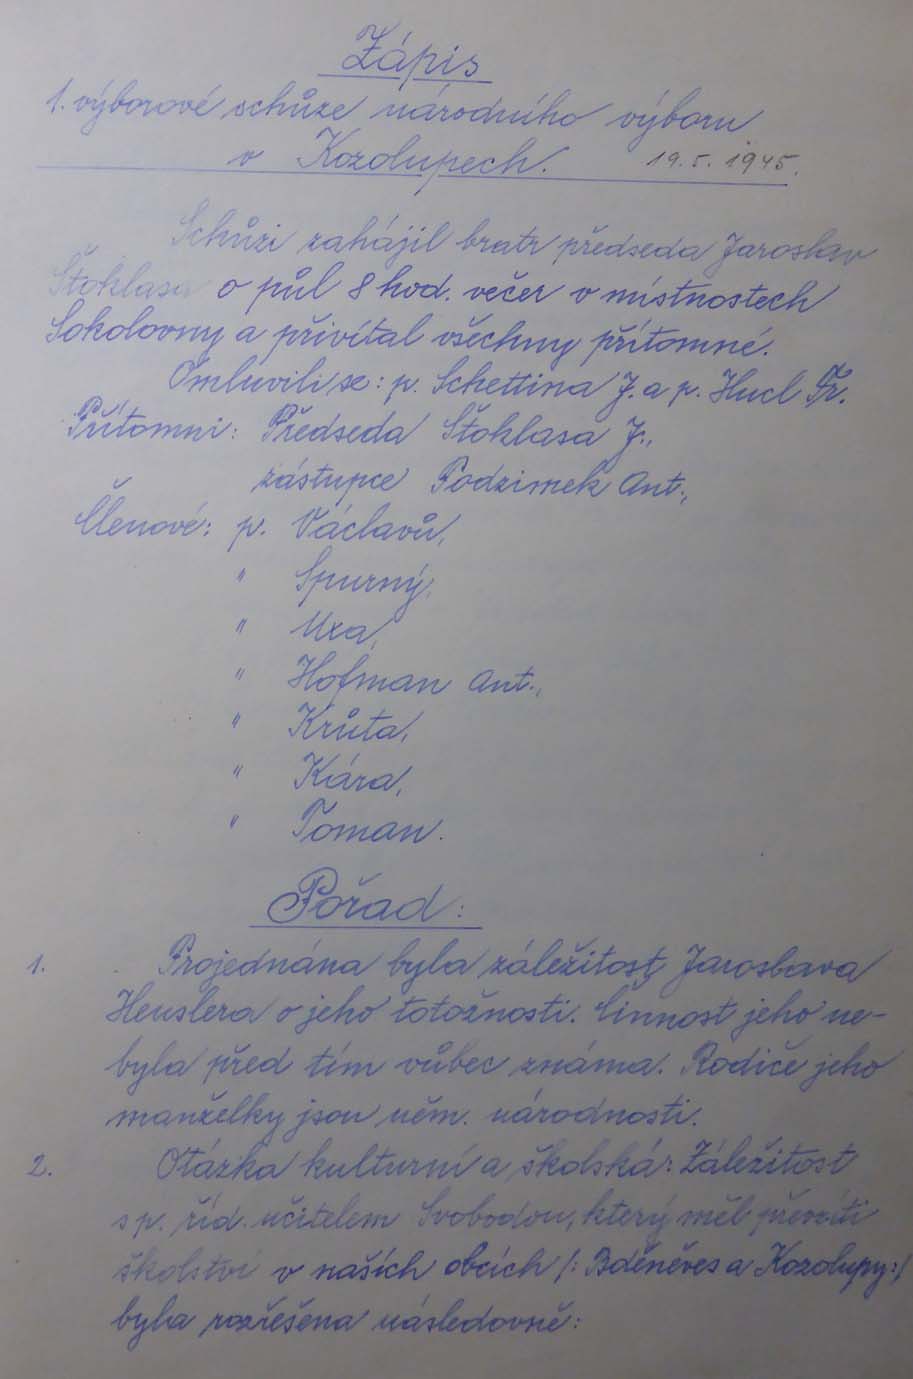 Zápis
1. výborové schůze národního výboru
v Kozolupech. 19.5.1945.
Schůzi zahájil bratr předseda Jaroslav
Štoklasa o půl 8 hod. večer v místnostech
Sokolovny a přivítal všechny přítomné.
Omluvili se: p. Schettina J. a p. Hucl Fr.
Přítomni: Předseda Štoklasa J.,
zástupce Podzimek Ant.,
Členové: p. Václavů,
" Spurný,
" Uxa,
" Hofman Ant.,
" Krůta,
" Kára,
" Toman.
Pořad:
1. Projednána byla záležitost Jaroslava
Heuslera o jeho totožnosti. Činnost jeho ne-
byla před tím vůbec známa. Rodiče jeho
manželky jsou něm. národnosti.
2. Otázka kulturní a školská: Záležitost
s p. říd. učitelem Svobodou, který měl převzíti
školství v našich obcích /: Bděněves a Kozolupy:/
byla rozřešena následovně: